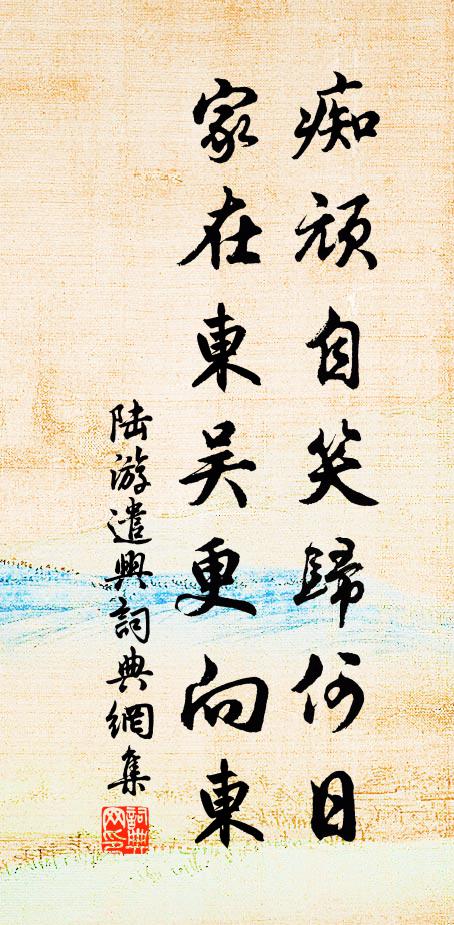 痴頑自笑歸何日
家在東吴更向東
陸游遣興詞典網集
詞典网印